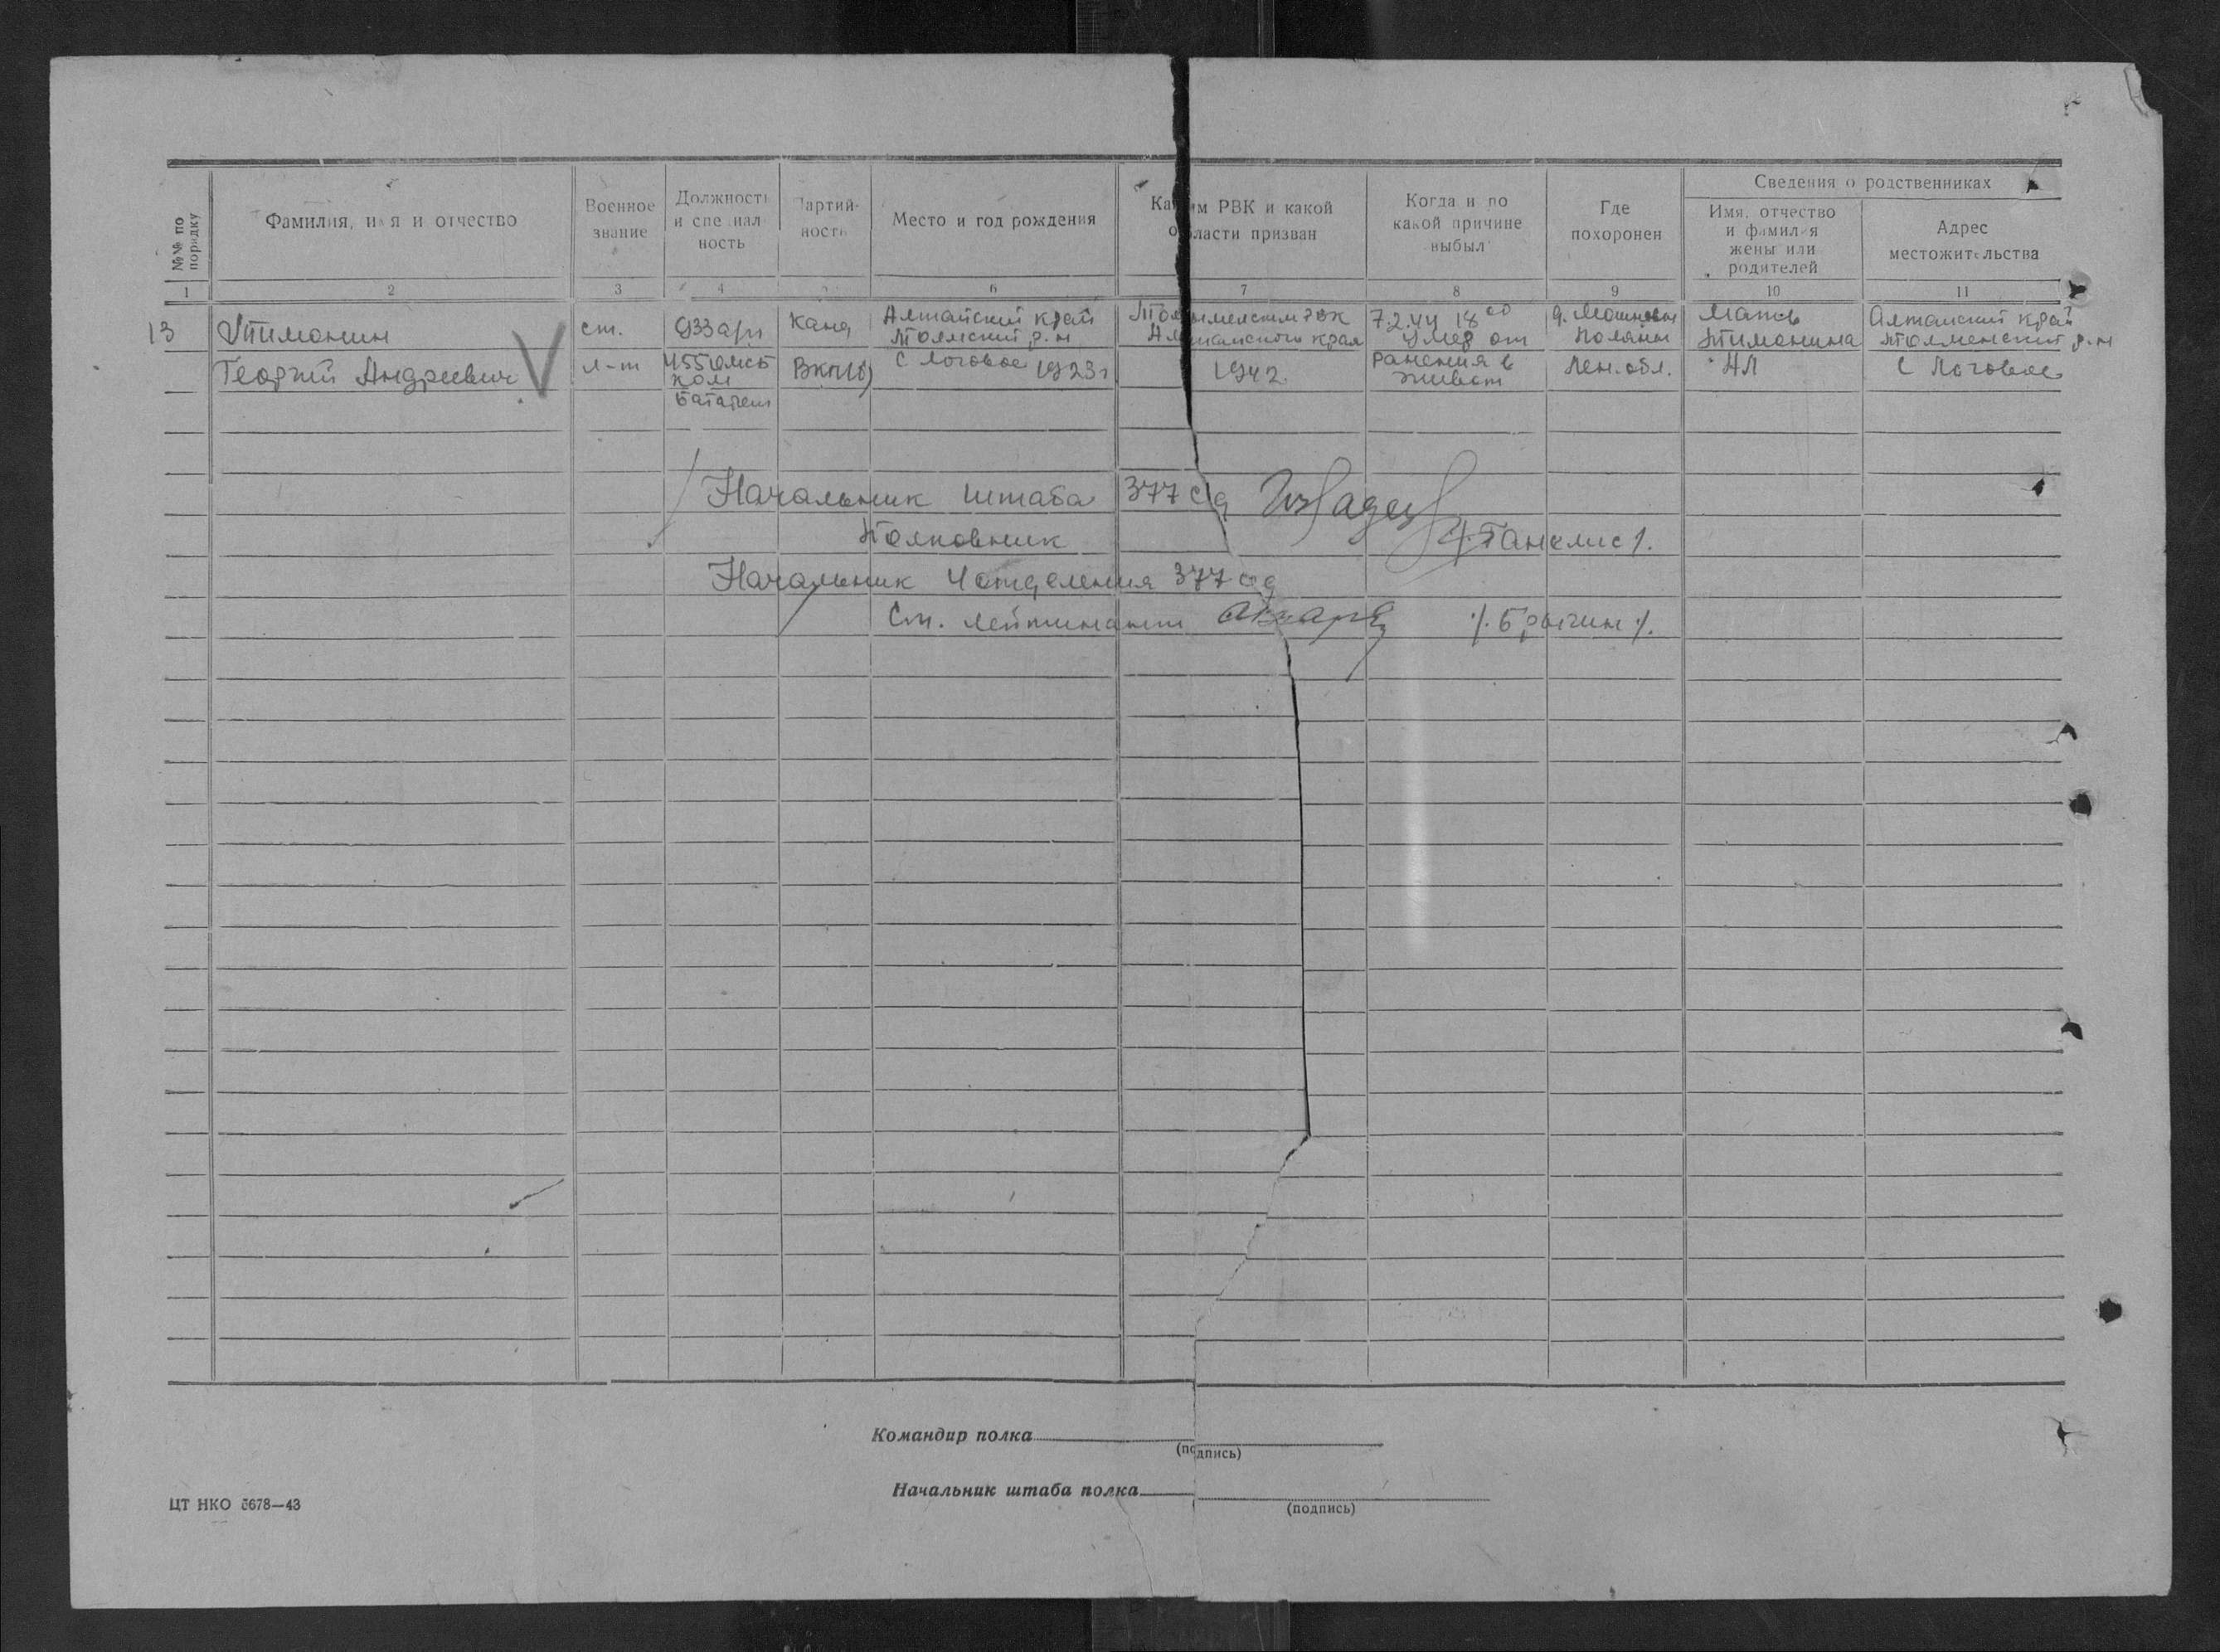 №№ по порядку
Фамилия, имя и отчество
Военное звание
Должность и специальность
Партийность
Место и год рождения
Каким РВК и какой области призван
Когда и по какой причине выбыл
Где похоронен
Сведения о родственниках
Имя, отчество и фамилия жены или родителей
Адрес местожительства
1 2 3 4 5 6 7 8 9 10 11
13
Тимонин
Георгий Андреевич
ст.
л-т
933 ап
ком
Батареи
Канд
ВКП(б)
Алтайский край
Толмский р-н
с Логовое 1923 г
РВК
Алтайского края
1942.
7.2.44 18 00
Умер от
ранения в
живот
д.
Поляны
Лен. обл.
Мать
Тимонина
Алтайский край
Толменский р-н
с Логовое
Начальник штаба 377 сд
Полковник
Начальник 4 отделения 377 сд
Ст. лейтинант
/. Брычин /.
Командир полка
(подпись)
Начальник штаба полка
(подпись)
ЦТ НКО 5678—43